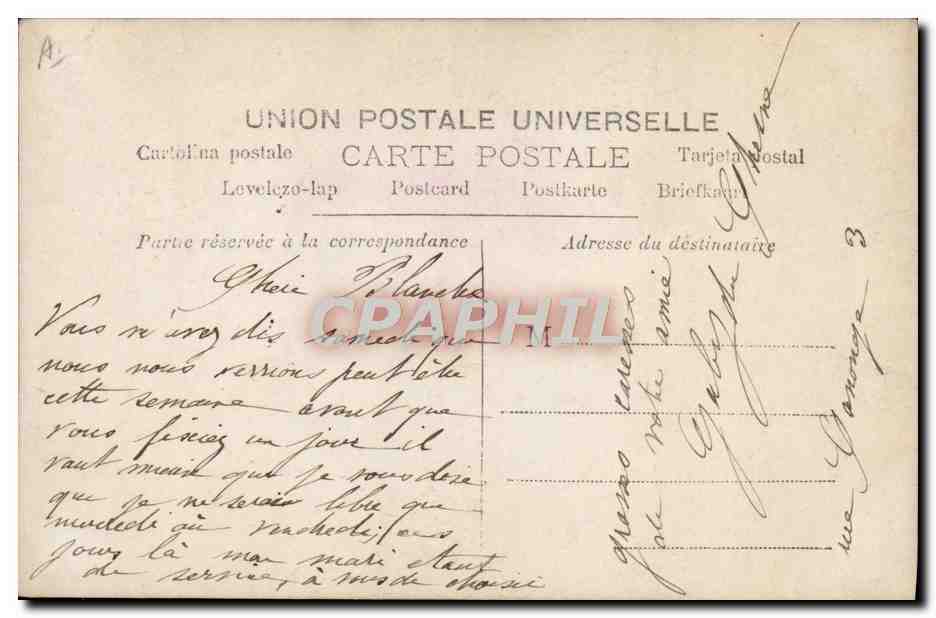 A.
UNION POSTALE UNIVERSELLE
Cartolina postale CARTE POSTALE Tarjeta postal
Levelezo-lap Postcard Postkarte Briefkaart
Partie réservée à la correspondance
Adresse du destinataire
M
CPAPHIL
Chère Blanche
Vous m'avez dis samedi que
nous nous verrions peut être
cette semaine avant que
vous fixiez un jour il
vaut mieux que je vous dise
que je ne serai libre que
mercredi ou vendredi, ces
jours là mon mari etant
de service, à vous de choisir
grosses caresses
de votre amie
Gaby du Chesne
rue Ganonge 3